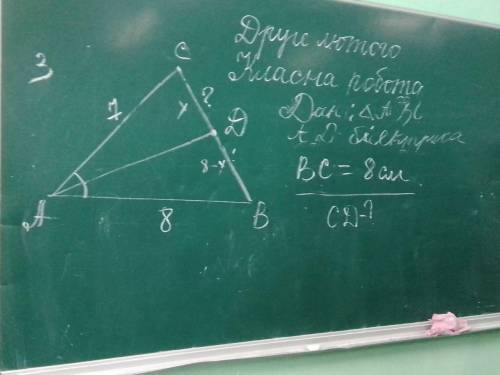 3
Друге лютого
Класна робота
Дано: △ABC
AD - бісектриса
BC = 8 см
CD - ?
C
7
x
?
D
8-x
A
8
B